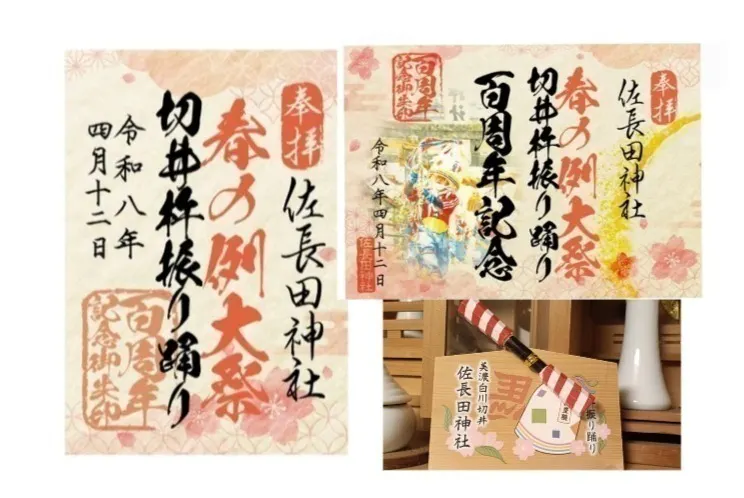 奉拝
佐長田神社
春の例大祭
切井杵振り踊り
令和八年
四月十二日
百周年
記念御朱印
奉拝
佐長田神社
春の例大祭
切井杵振り踊り
百周年記念
百周年
記念御朱印
令和八年四月十二日
佐長田神社
振り踊り
黒
美濃白川切井
佐長田神社